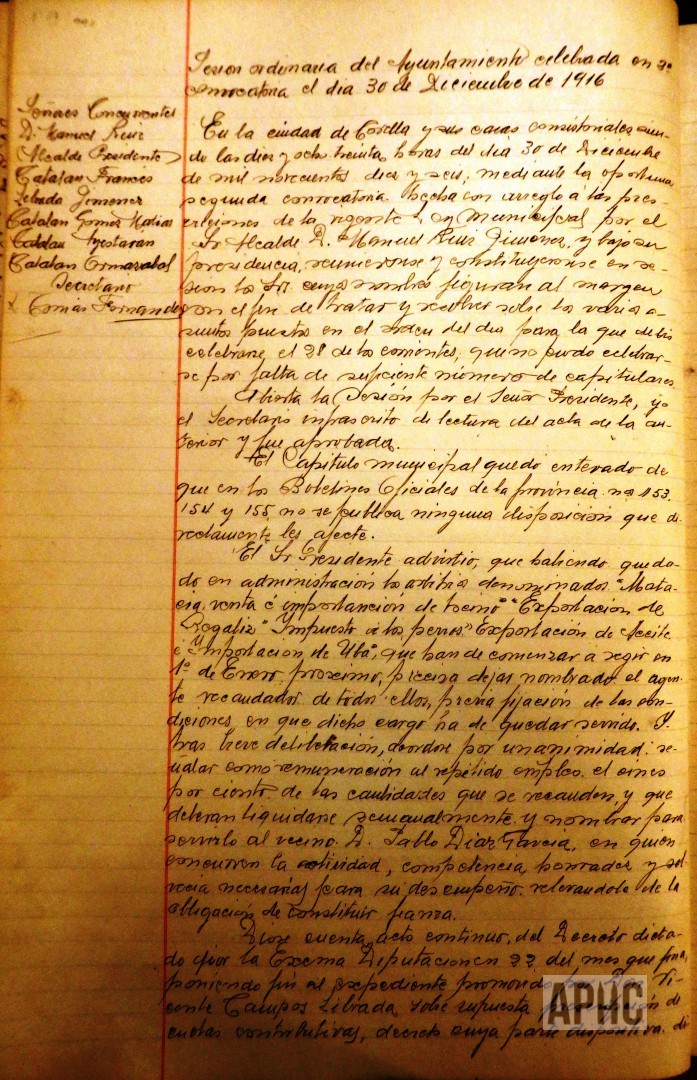 Sesion ordinaria del Ayuntamiento celebrada en 2ª
convocatoria el dia 30 de Diciembre de 1916
Señores Concurrentes
D. Manuel Ruiz
Alcalde Presidente
Catalan Frances
Lebrada Jimenez
Catalan Gomez Matias
Catalan Ayestaran
Catalan Ormazabal
Secretario
Tomás Fernandez
En la ciudad de Corella y sus casas consistoriales
do las diez y ocho treinta horas del dia 30 de Diciembre
de mil novecientos diez y seis, mediante la oportuna
segunda convocatoria hecha con arreglo á las pres-
cripciones de la vigente Ley Municipal por el
Sr Alcalde D. Manuel Ruiz Jimenez, y bajo su
presidencia, reunieronse y constituyeronse en se-
sion los Srs cuyos nombres figuran al margen
con el fin de tratar y resolver sobre los varios a-
suntos puestos en el orden del dia para la que debió
celebrarse el 28 de los corrientes, que no pudo celebrar-
se por falta de suficiente número de capitulares.
Abierta la Sesión por el Señor Presidente, yo
el Secretario infrascrito di lectura del acta de la an-
terior y fue aprobada.
El Capitulo municipal quedo enterado de
que en los Boletines Oficiales de la provincia nos 153
154 y 155 no se publica ninguna disposición que di-
rectamente les afecte.
El Sr Presidente advirtio, que habiendo queda-
do en administración los arbitrios denominados "Mata-
cia, venta é importanción de tocino" "Exportacion de
Regaliz" "Impuesto á los perros" "Exportación de Aceite
é "Ymportacion de Uba", que han de comenzar a regir en
1º de Enero proximo, precisa dejar nombrado el agen-
te recaudador de todos ellos, previa fijación de las con-
diciones en que dicho cargo ha de quedar servido. Y
tras breve deliberación, acordose por unanimidad: se-
ñalar como remuneración al repetido empleo el cinco
por ciento de las cantidades que se recauden, y que
deberan liquidarse semanalmente, y nombrar para
servirlo al vecino D. Pablo Diaz Garcia, en quien
concurren la actividad, competencia, honradez y sol-
vencia necesarias para su desempeño, relevandole de la
obligación de constituir fianza.
Diose cuenta, acto continuo, del Decreto dicta-
do por la Excma Diputacion en 22 del mes que fina,
poniendo fin al expediente promovido por Don Vi-
cente Campos Lebrada, sobre supuesta de
cuotas contributivas, decreto cuya parte dispositiva di-
АРИС